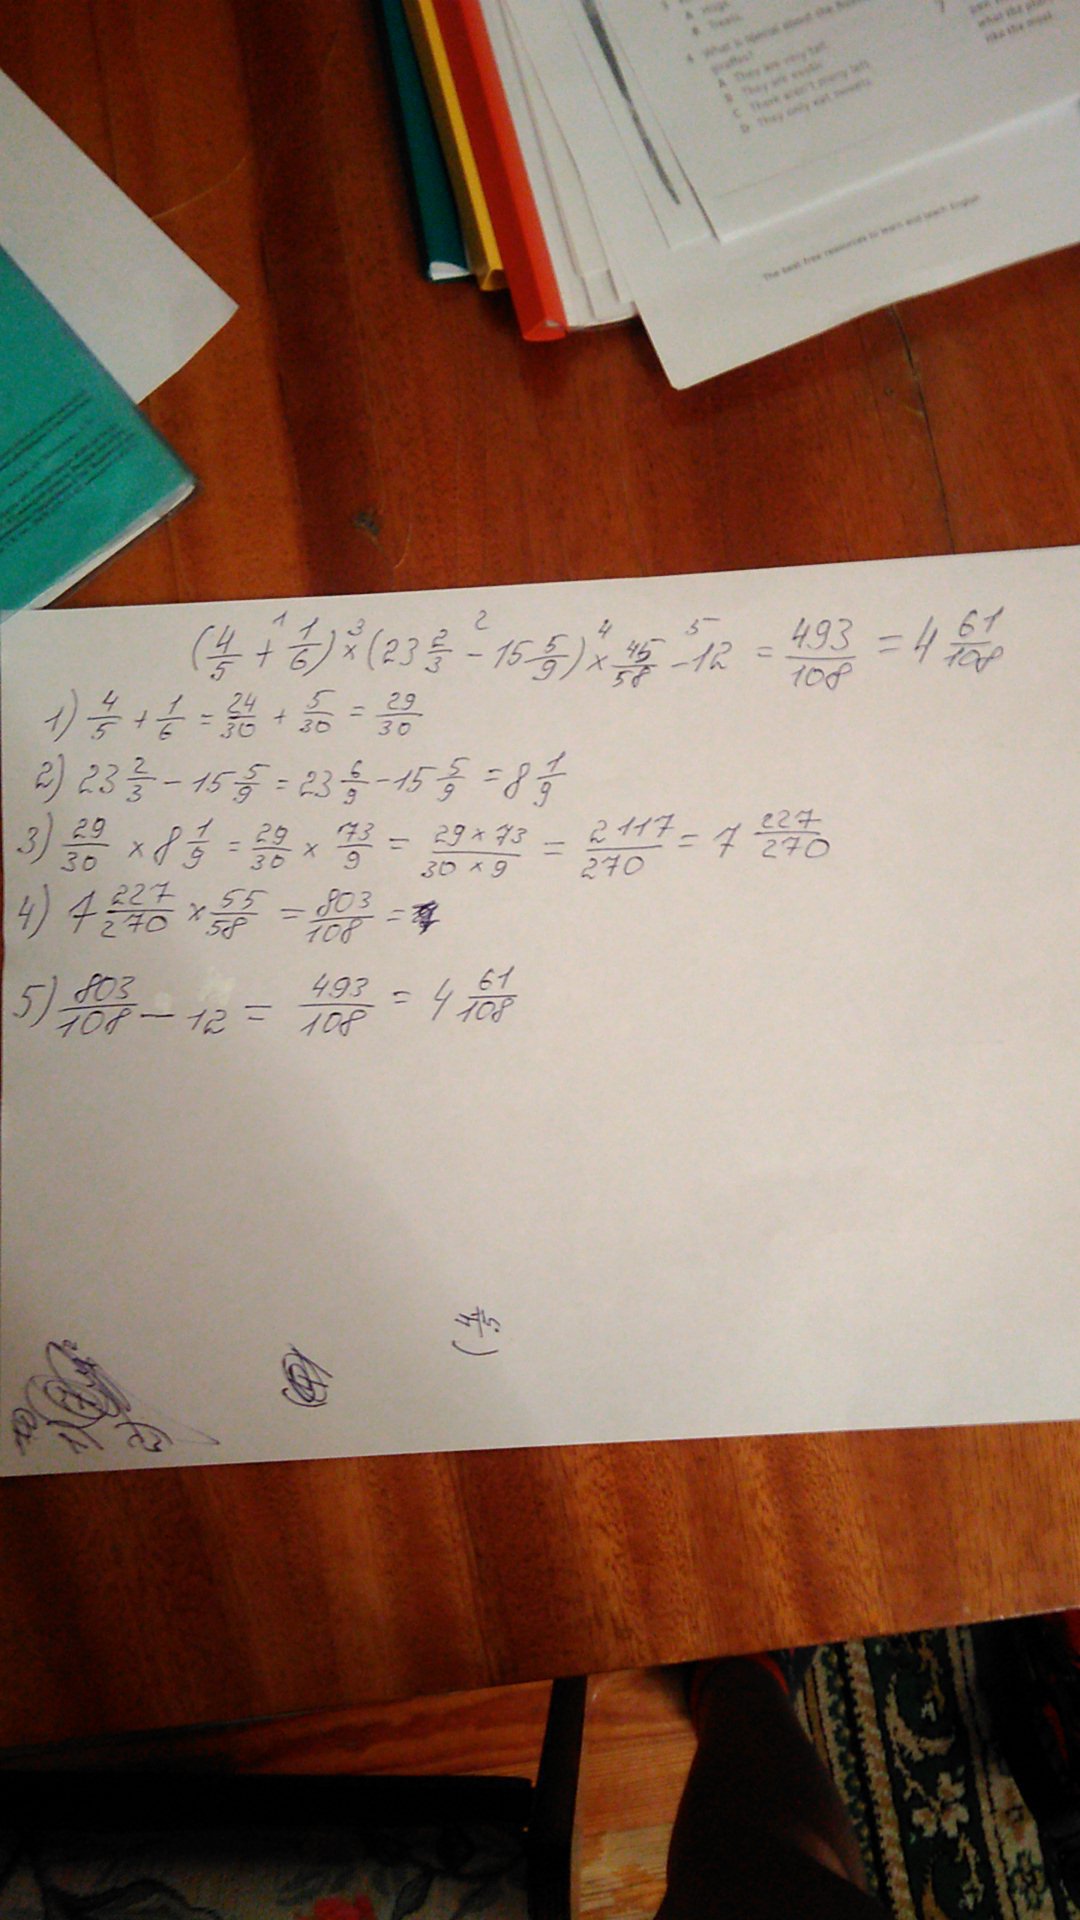 A
B Treats.
4 What is special about the
giraffes?
A They are very tall.
B They are exotic.
C There aren't many left.
D They only eat sweets.
what did
like the most
The best free resources to learn and teach English
1 3 2 4 5
(4/5 + 1/6) × (23 2/3 - 15 5/9) × 45/58 - 12 = 493/108 = 4 61/108
1) 4/5 + 1/6 = 24/30 + 5/30 = 29/30
2) 23 2/3 - 15 5/9 = 23 6/9 - 15 5/9 = 8 1/9
3) 29/30 × 8 1/9 = 29/30 × 73/9 = 29×73/30×9 = 2117/270 = 7 227/270
4) 7 227/270 × 55/58 = 803/108 =
5) 803/108 - 12 = 493/108 = 4 61/108
(4/5